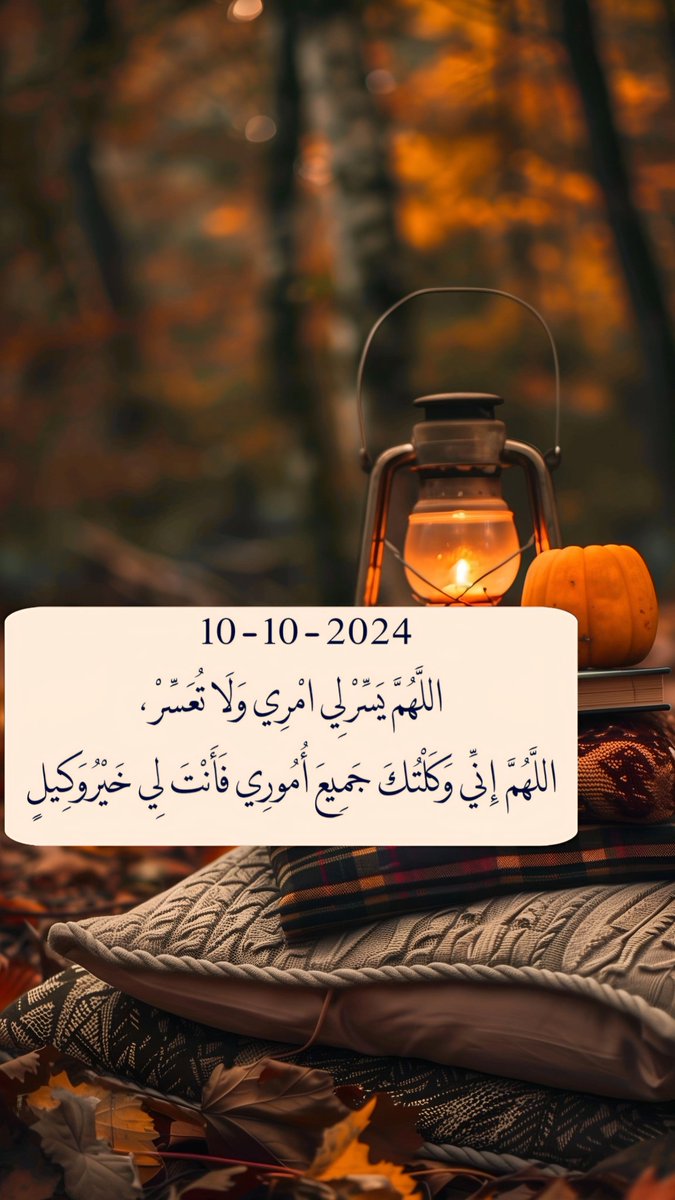 10-10-2024
اللَّهُمَّ يَسِّرْ لِي امْرِي وَلَا تُعَسِّرْ،
اللَّهُمَّ إِنِّي وَكَلْتُكَ جَمِيعَ أُمُورِي فَأَنْتَ لِي خَيْرُ وَكِيلٍ